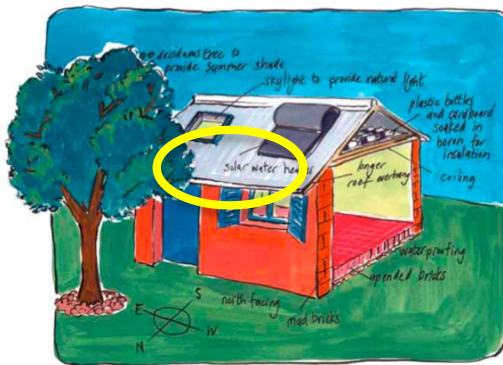 decidous tree to
provide summer shade
skylight to provide natural light
plastic bottles
and cardboard
soaked in
boron for
insulation
solar water heater
longer
roof overhang
ceiling
waterproofing
upended bricks
north facing
mud bricks
S
E
W
N